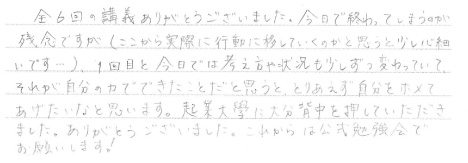 全6回の講義ありがとうございました。今日で終わってしまうのが
残念ですが(ここから実際に行動に移していくのかと思うと少し心細
いです…)、1回目と今日では考え方や状況も少しずつ変わっていて、
それが自分の力でできたことだと思うと、とりあえず自分をホメて
あげたいなと思います。起業大學に大分背中を押していただき
ました。ありがとうございました。これからは公式勉強会で
お願いします!